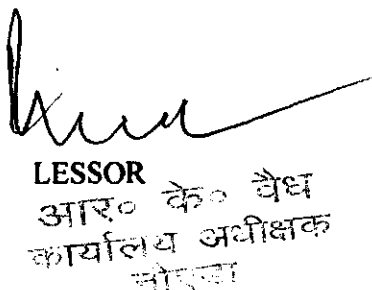 LESSOR
आर० के० वैध
कार्यालय अधीक्षक
नोएडा